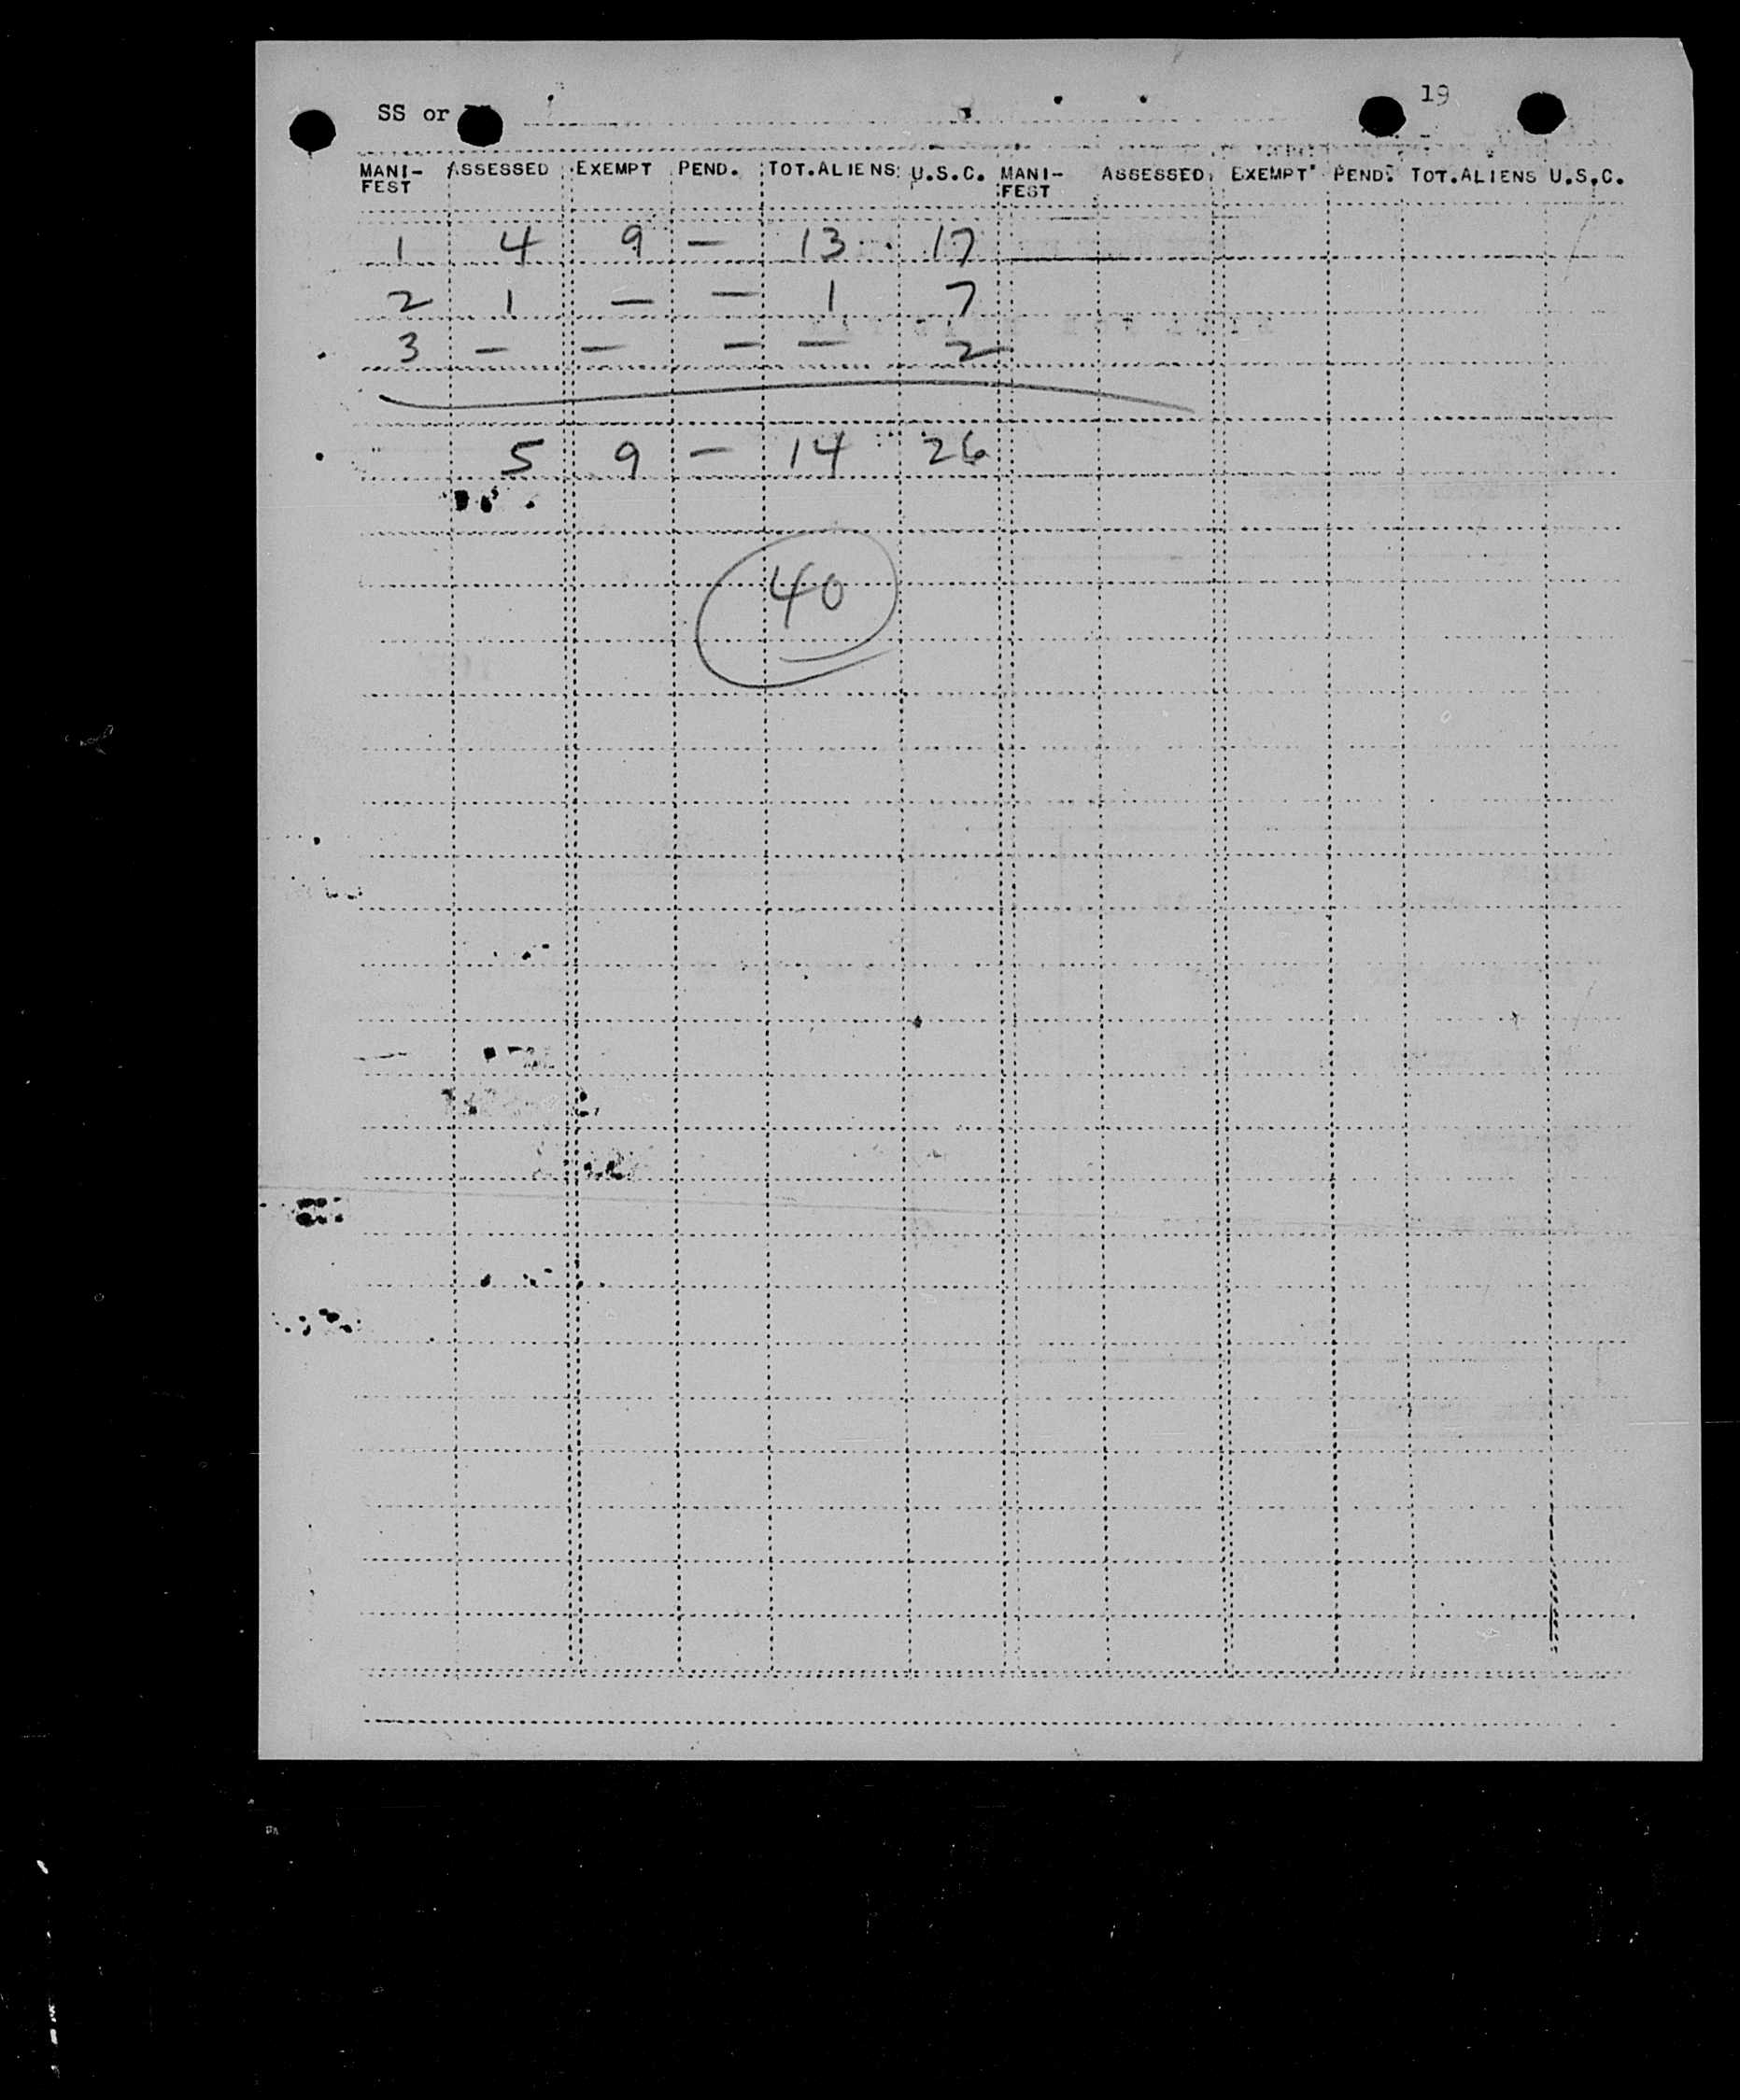 SS or
19
MANI-FEST ASSESSED EXEMPT PEND. TOT.ALIENS U.S.C. MANI-FEST ASSESSED EXEMPT PEND. TOT.ALIENS U.S.C.
1 4 9 — 13 17
2 1 — — 1 7
3 — — — — 2
5 9 — 14 26
40